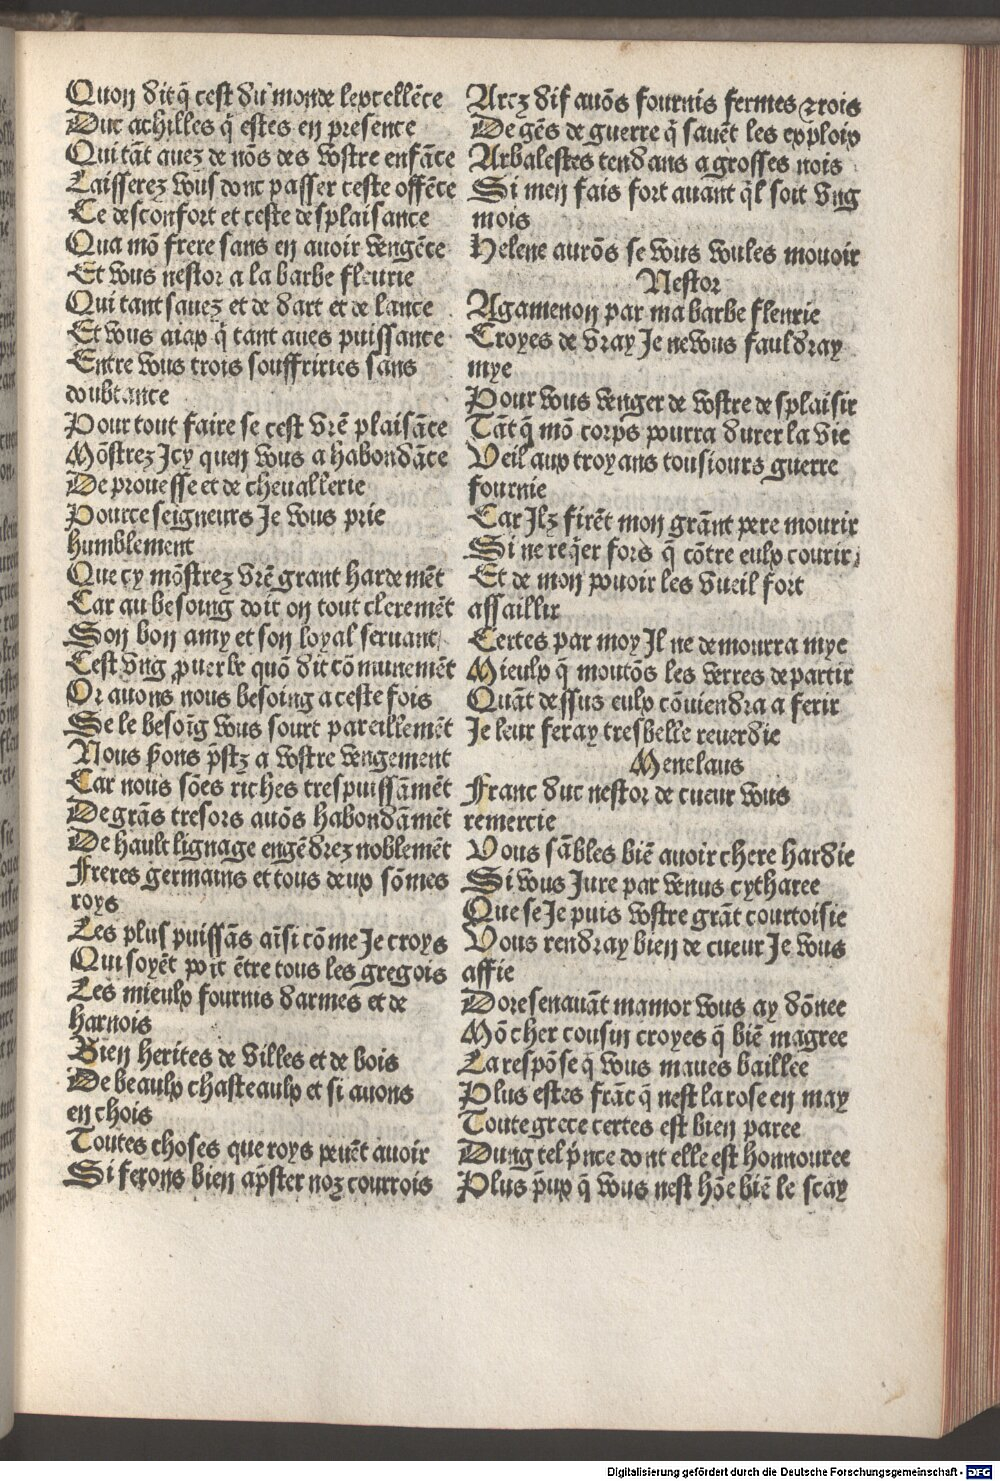 Quon dit q̃ cest du monde lexcellẽce
Duc achilles q̃ estes en presence
Qui tãt auez de nõs des vostre enfãce
Laisserez vous donc passer ceste offẽce
Ce desconfort et ceste desplaisance
Qua mõ frere sans en auoir vengẽce
Et vous nestor a la barbe fleurie
Qui tant sauez et de dart et de lance
Et vous aiax q̃ tant aues puissance
Entre vous trois souffriries sans
doubtance
Pour tout faire se cest vrẽ plaisãce
Mõstrez Icy quen vous a habondãce
De prouesse et de cheuallerie
Pource seigneurs Je vous prie
humblement
Que cy mõstrez vrẽ grant hardemẽt
Car au besoing doit on tout cleremẽt
Son bon amy et son loyal seruant
Cest vng ꝓuerbe quõ dit cõmunemẽt
Or auons nous besoing a ceste fois
Se le besoĩg vous sourt pareillemẽt
Nous ẜons p̃stz a vostre vengement
Car nous sões riches trespuissãmẽt
De grãs tresors auõs habondãmẽt
De hault lignage engẽdrez noblemẽt
Freres germains et tous deux sõmes
roys
Les plus puissãs aĩsi cõme Je croys
Qui soyẽt poĩt ẽtre tous les gregois
Les mieulx fournis darmes et de
harnois
Bien herites de villes et de bois
De beaulx chasteaulx et si auons
en chois
Toutes choses que roys peuẽt auoir
Si ferons bien ap̃ster noz courrois
Arcz dif auõs fournis fermes ⁊ rois
De gẽs de guerre q̃ sauẽt les exploix
Arbalestes tendans a grosses nois
Si men fais fort auant q̃l soit vng
mois
Helene aurõs se vous voules mouoir
Nestor
Agamenon par ma barbe fleurie
Croyes de vray Je ne vous fauldray
mye
Pour vous venger de vostre desplaisir
Tãt q̃ mõ corps pourra durer la vie
Veil aux troyans tousiours guerre
fournie
Car Ilz firẽt mon grãnt pere mourir
Si ne req̃er fors q̃ cõtre eulx courir
Et de mon pouoir les vueil fort
assaillir
Certes par moy Il ne demourra mye
Mieulx q̃ moutõs les verres departir
Quãt dessus eulx cõuiendra a ferir
Je leur feray tresbelle reuerdie
Menelaus
Franc duc nestor de cueur vous
remercie
Vous sãbles biẽ auoir chere hardie
Si vous Jure par venus cytharee
Que se Je puis vostre grãt courtoisie
Vous rendray bien de cueur Je vous
affie
Doresenauãt mamor vous ay dõnee
Mõ cher cousin croyes q̃ biẽ magree
La respõse q̃ vous maues baillee
Plus estes frãc q̃ nest la rose en may
Toute grece certes est bien paree
Dung tel p̃nce dont elle est honnouree
Plus p̃ux q̃ vous nest hõe biẽ le scay
Digitalisierung gefördert durch die Deutsche Forschungsgemeinschaft - DFG